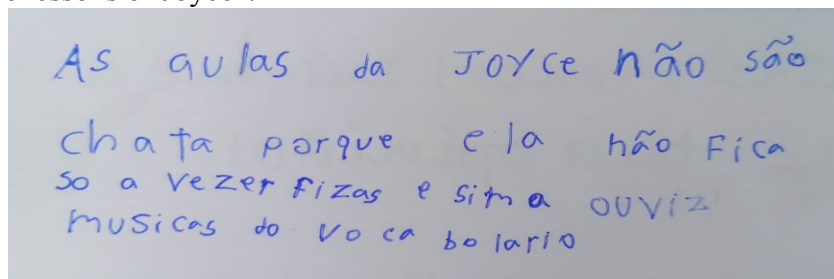 As aulas da JOYce não são
chata porque ela não Fica
so a vezer fizas e sim a ouviz
musicas do voca bolario